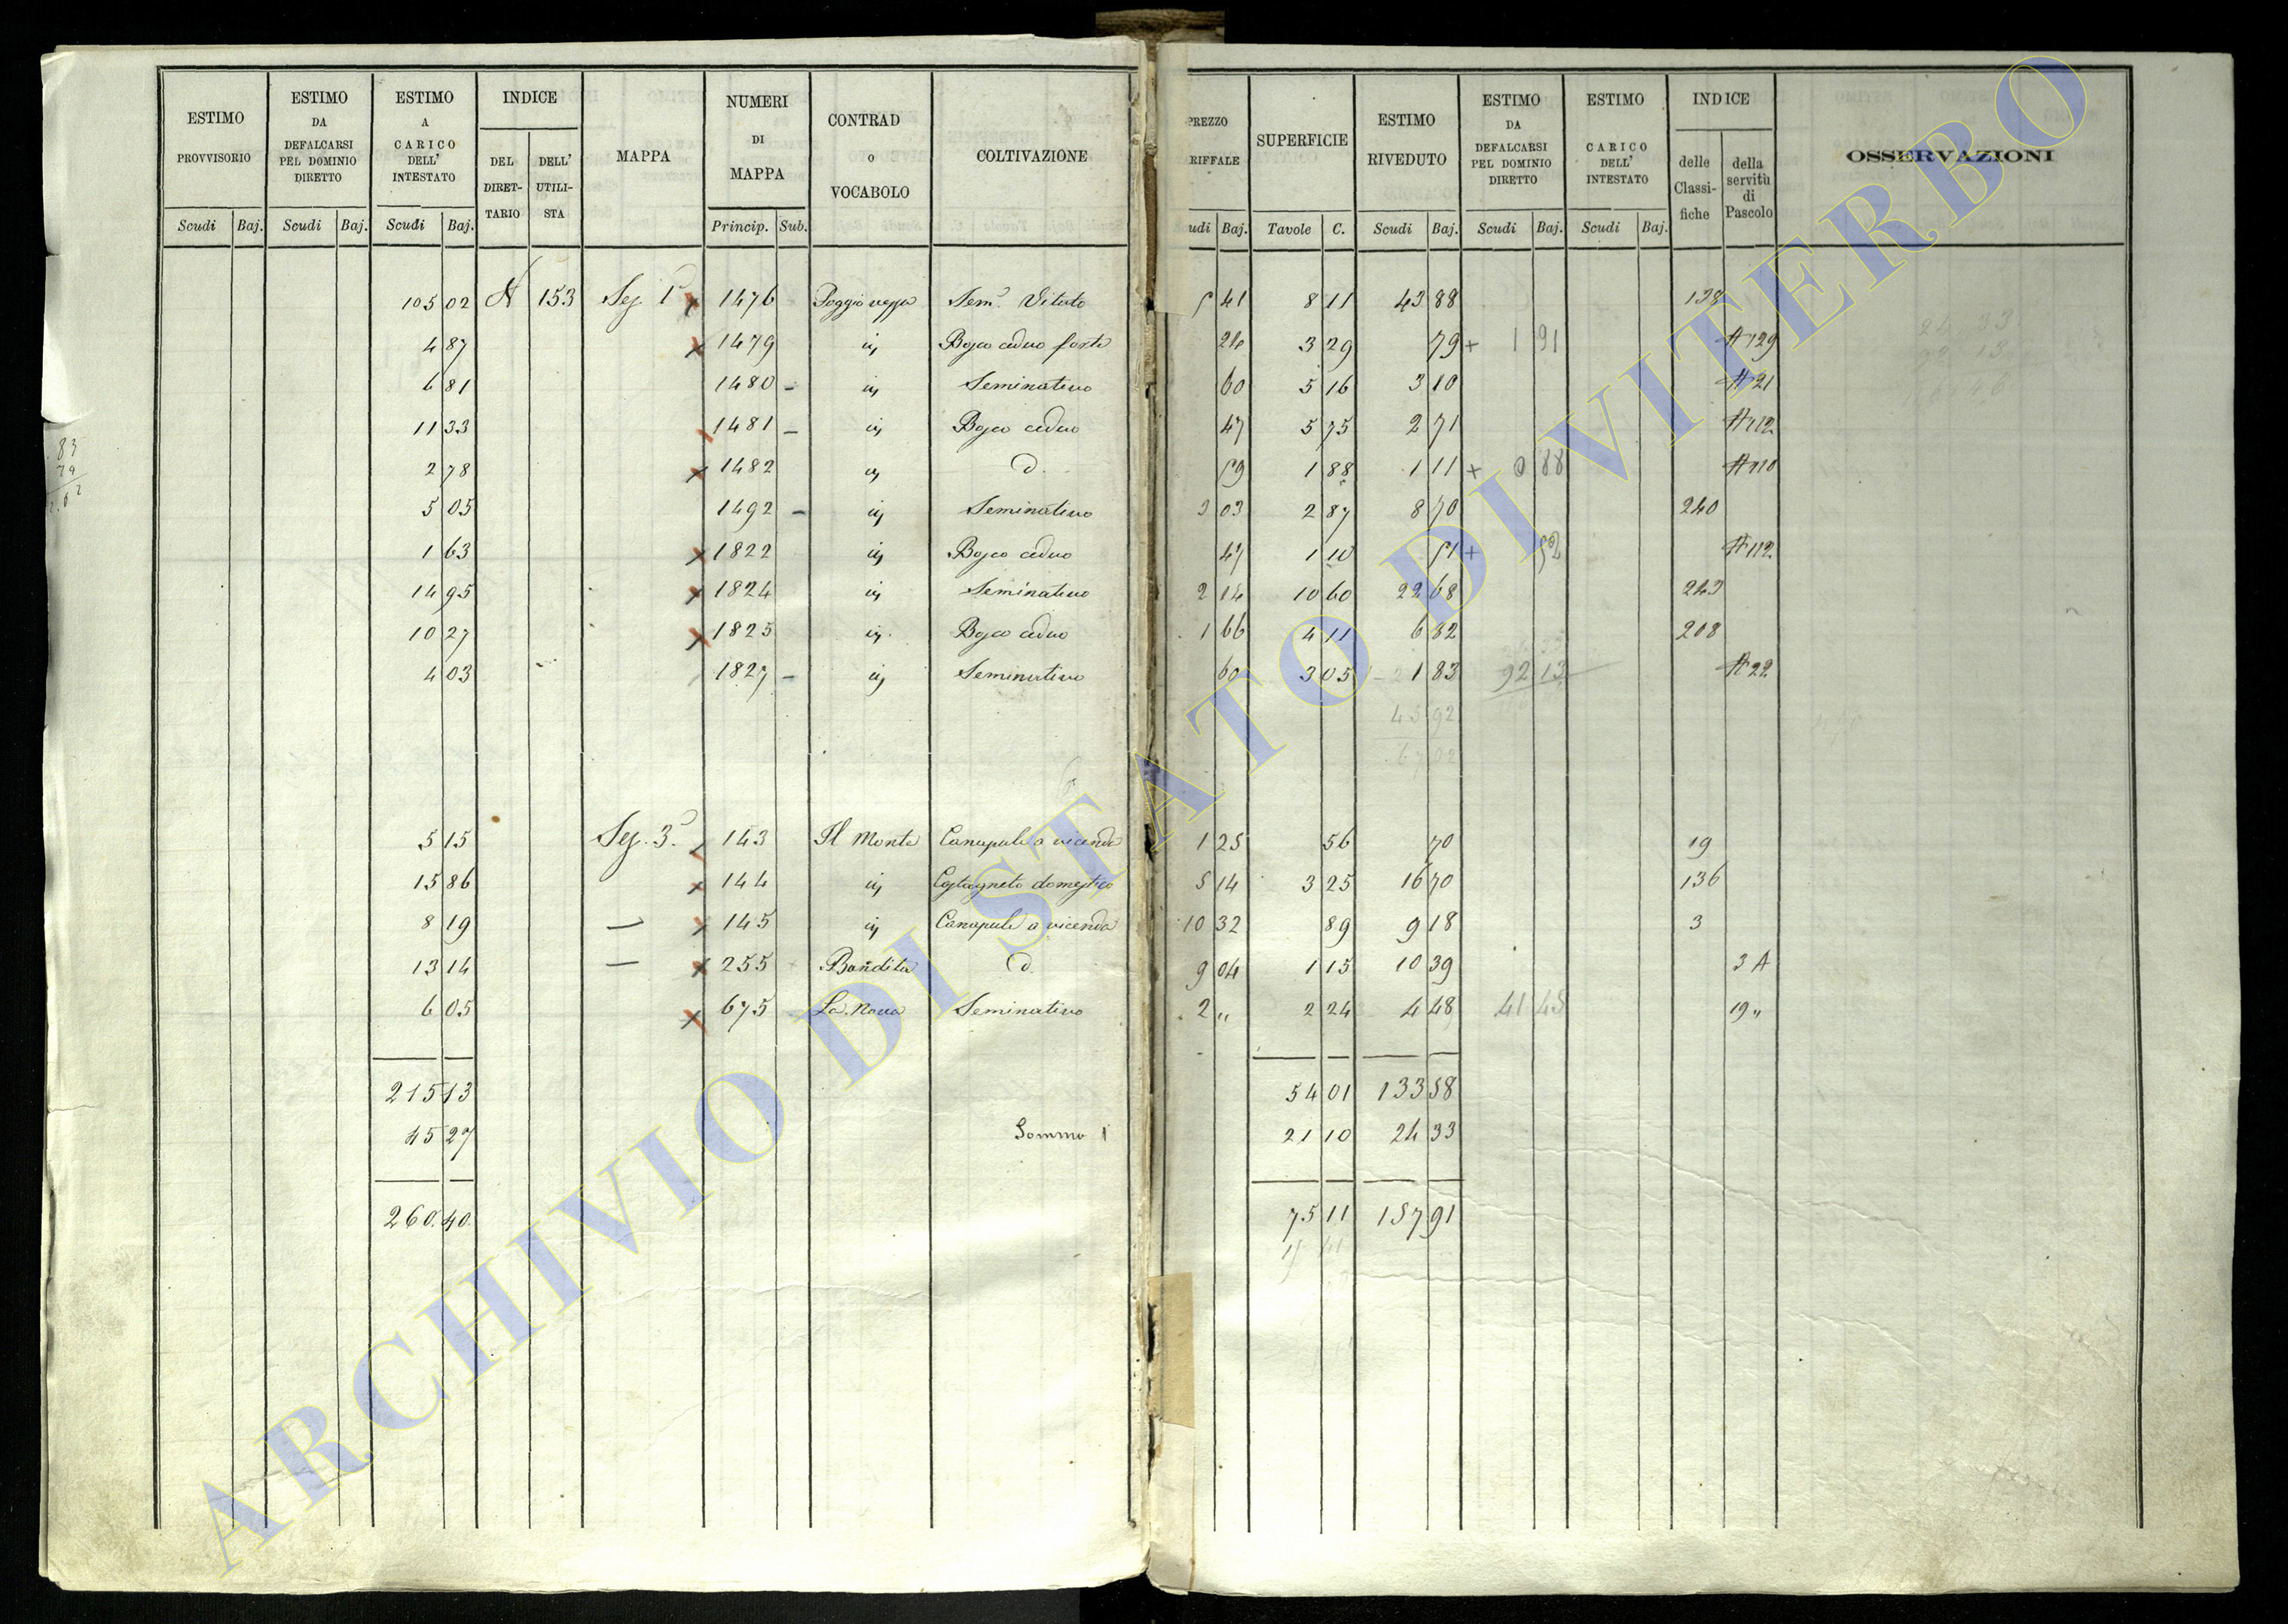 ESTIMO PROVVISORIO | ESTIMO DA DEFALCARSI PEL DOMINIO DIRETTO | ESTIMO A CARICO DELL' INTESTATO | INDICE DEL DIRET-TARIO | DELL' UTILI-STA | MAPPA | NUMERI DI MAPPA | CONTRAD o VOCABOLO | COLTIVAZIONE | PREZZO RIFFALE | SUPERFICIE | ESTIMO RIVEDUTO | ESTIMO DA DEFALCARSI PEL DOMINIO DIRETTO | ESTIMO CARICO DELL' INTESTATO | INDICE delle Classi-fiche | della servitù di Pascolo | OSSERVAZIONI
Scudi Baj. Scudi Baj. Scudi Baj. Princip. Sub. udi Baj. Tavole C. Scudi Baj. Scudi Baj. Scudi Baj.
105 02 153 Sez. 1ª 1476 Sem.º Vitato 5 41 8 11 43 88 138
4 87 1479 id Bosco ceduo forte 24 3 29 79 + 1 91 129
6 81 1480 id Seminativo 60 5 16 3 10 21
11 33 1481 id Bosco ceduo 47 5 75 2 71 112
2 78 1482 id d. 59 1 88 1 11 + 0 88 110
5 05 1492 id Seminativo 3 03 2 87 8 70 240
1 63 1822 id Bosco ceduo 47 1 10 51 + 52 112
14 95 1824 id Seminativo 2 14 10 60 22 68 243
10 27 1825 id Bosco ceduo 1 66 4 11 6 82 208
4 03 1827 id Seminativo 60 3 05 1 83 92 13 22
45 92
67 02
5 15 Sez. 3ª 143 Il Monte Canapule a vicenda 1 25 56 70 19
15 86 144 id Castagneto domestico 5 14 3 25 16 70 136
8 19 145 id Canapule a vicenda 10 32 89 9 18 3
13 14 255 Bandita d. 9 04 1 15 10 39 3 A
6 05 675 La Nova Seminativo 2 " 2 24 4 48 41 45 19 "
215 13 54 01 133 58
45 27 Somma 1 21 10 24 33
260 40 75 11 157 91
83
24 33
92 13
ARCHIVIO DI STATO DI VITERBO